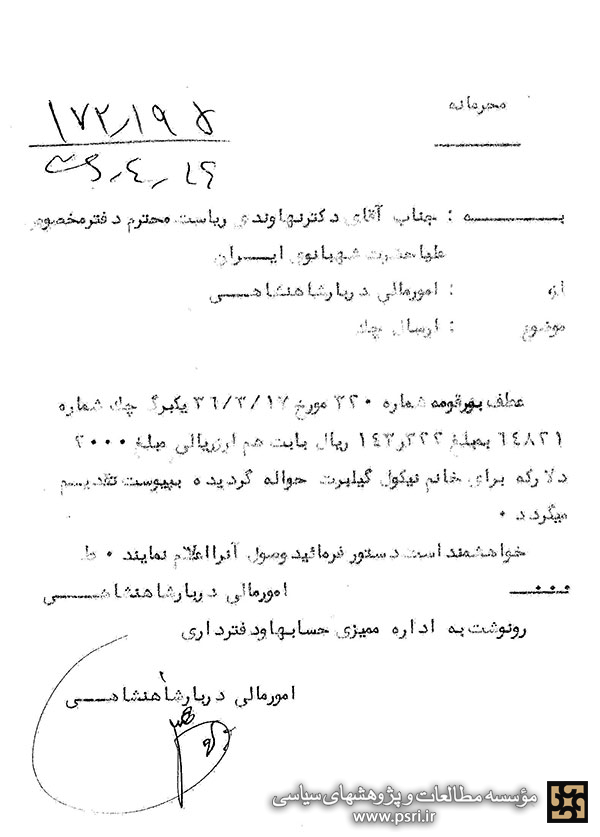 محرمانه
۱۷۲٫۱۹۵
به : جناب آقای دکترنهاوندی ریاست محترم دفترمخصوص
علیاحضرت شهبانوی ایران
از : امورمالی دربارشاهنشاهی
موضوع : ارسال چك
عطف بورقومه شماره ۳۲۰ مورخ ۳۶/۳/۱۷ یکبرگ چك شماره
۶۴۸۲۱ بمبلغ ۱۴۳٫۳۲۲ ریال بابت هم ارزریالی مبلغ ۲۰۰۰
دلارکه برای خانم نیکول گیلبرت حواله گردیده بپیوست تقدیم
میگردد ۰
خواهشمند است دستور فرمائید وصول آنرا اعلام نمایند ۰ ط
امورمالی دربارشاهنشاهی
رونوشت به اداره ممیزی حسابهاودفترداری
امورمالی دربارشاهنشاهی
مؤسسه مطالعات و پژوهشهای سیاسی
www.psri.ir